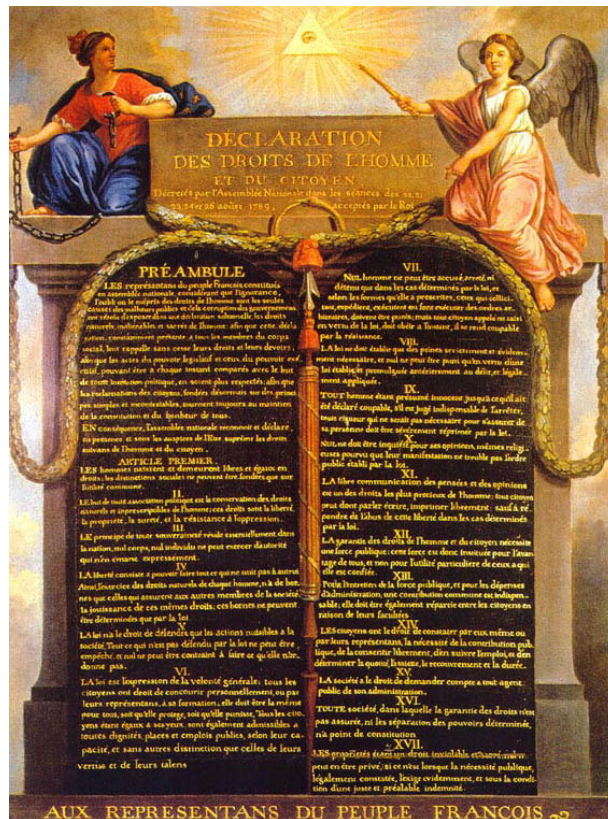 DÉCLARATION
DES DROITS DE L'HOMME
ET DU CITOYEN
Décretés par l'Assemblée Nationale dans les séances des 20, 21
23, 24 et 26 août 1789, acceptés par le Roi
PRÉAMBULE
LES représentans du peuple François, constitués
en assemblée nationale, considérant que l'ignorance,
l'oubli ou le mépris des droits de l'homme sont les seules
causes des malheurs publics et de la corruption des gouvernemens
ont résolu d'exposer dans une déclaration solemnelle, les droits
naturels, inaliénables et sacrés de l'homme; afin que cette décla
ration, constamment présente à tous les membres du corps
social, leur rappelle sans cesse leurs droits et leurs devoirs;
afin que les actes du pouvoir législatif et ceux du pouvoir exé
cutif, pouvant être à chaque instant comparés avec le but
de toute institution politique, en soient plus respectés; afin que
les réclamations des citoyens, fondées désormais sur des princi
pes simples et incontestables, tournent toujours au maintien
de la constitution et du bonheur de tous.
EN conséquence, l'assemblée nationale reconnoit et déclare,
en présence et sous les auspices de l'Etre suprême les droits
suivans de l'homme et du citoyen.
ARTICLE PREMIER.
LES hommes naissent et demeurent libres et égaux en
droits; les distinctions sociales ne peuvent être fondées que sur
l'utilité commune.
II.
LE but de toute association politique est la conservation des droits
naturels et imprescriptibles de l'homme; ces droits sont la liberté,
la propriété, la sureté, et la résistance à l'oppression.
III.
LE principe de toute souveraineté réside essentiellement dans
la nation, nul corps, nul individu ne peut exercer d'autorité
qui n'en émane expressement.
IV.
LA liberté consiste à pouvoir faire tout ce qui ne nuit pas à autrui
Ainsi, l'exercice des droits naturels de chaque homme, n'a de bor
nes que celles qui assurent aux autres membres de la société
la jouissance de ces mêmes droits; ces bornes ne peuvent
être déterminées que par la loi
V.
LA loi n'a le droit de défendre que les actions nuisibles à la
société. Tout ce qui n'est pas défendu par la loi ne peut être
empêché, et nul ne peut être contraint à faire ce qu'elle n'or
donne pas.
VI.
LA loi est l'expression de la volonté générale; tous les
citoyens ont droit de concourir personnellement, ou par
leurs représentans, à sa formation; elle doit être la même
pour tous, soit qu'elle protege, soit qu'elle punisse. Tous les cito
yens étant égaux à ses yeux, sont également admissibles à
toutes dignités, places et emplois publics, selon leur ca
pacité, et sans autres distinction que celles de leurs
vertus et de leurs talens
VII.
NUL homme ne peut être accusé, arreté, ni
détenu que dans les cas déterminés par la loi, et
selon les formes qu'elle a prescrites, ceux qui sollici
tent, expédient, exécutent ou font exécuter des ordres ar
bitraires, doivent être punis; mais tout citoyen appelé ou saisi
en vertu de la loi, doit obéir à l'instant, il se rend coupable
par la résistance.
VIII.
LA loi ne doit établir que des peines strictement et évidem
ment nécessaires, et nul ne peut être puni qu'en vertu d'une
loi établie et promulguée antérieurement au délit, et légale
ment appliquée.
IX.
TOUT homme étant présumé innocent jusqu'à ce qu'il ait
été déclaré coupable, s'il est jugé indispensable de l'arrêter,
toute rigueur qui ne serait pas nécessaire pour s'assurer de
sa personne doit être sévèrement réprimée par la loi.
X.
NUL ne doit être inquiété pour ses opinions, mêmes religi
euses pourvu que leur manifestation ne trouble pas l'ordre
public établi par la loi.
XI.
LA libre communication des pensées et des opinions
est un des droits les plus precieux de l'homme; tout citoyen
peut donc parler écrire, imprimer librement: sauf à ré
pondre de l'abus de cette liberté dans les cas déterminés
par la loi.
XII.
LA garantie des droits de l'homme et du citoyen nécessite
une force publique: cette force est donc instituée pour l'avan
tage de tous, et non pour l'utilité particuliere de ceux a qui
elle est confiée.
XIII.
Pour l'entretien de la force publique, et pour les dépenses
d'administration, une contribution commune est indispen
sable; elle doit être également répartie entre les citoyens en
raison de leurs facultées
XIV.
LES citoyens ont le droit de constater par eux même ou
par leurs représentans, la nécessité de la contribution pub
lique, de la consentir librement, d'en suivre l'emploi, et d'en
déterminer la quotité, l'assiette, le recouvrement et la durée.
XV.
LA société a le droit de demander compte a tout agent
public de son administration.
XVI.
TOUTE société, dans laquelle la garantie des droits n'est
pas assurée, ni les séparation des pouvoirs déterminée,
n'a point de constitution
XVII.
LES propriétés étant un droit inviolable et sacré, nul ne
peut en être privé, si ce n'est lorsque la nécessité publique,
légalement constatée, l'exige evidemment, et sous la condi
tion d'une juste et préalable indemnité.
AUX REPRESENTANS DU PEUPLE FRANCOIS